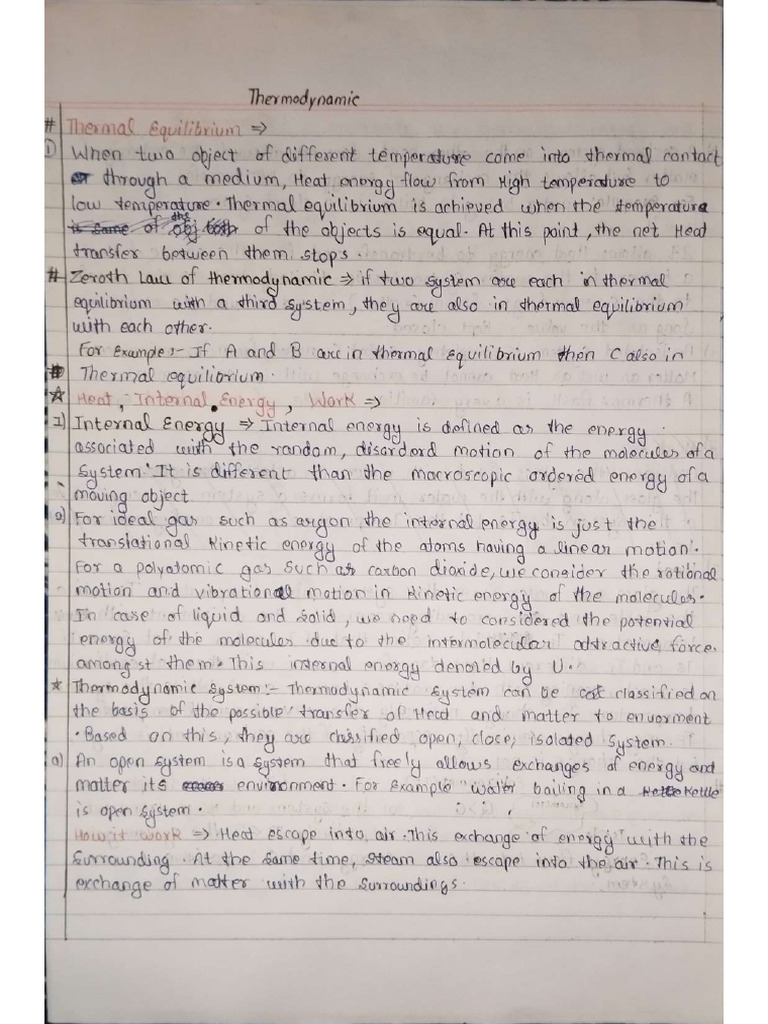 Thermodynamic
# Thermal Equilibrium ⇒
① When two object of different temperature come into thermal contact
through a medium, Heat energy flow from High temperature to
low temperature. Thermal equilibrium is achieved when the temperature
of the objects is equal. At this point, the net Heat
transfer between them stops.
# Zeroth Law of thermodynamic ⇒ if two system are each in thermal
equilibrium with a third system, they are also in thermal equilibrium
with each other.
For Example:- If A and B are in thermal Equilibrium then C also in
# Thermal equilibrium.
☆ Heat, Internal Energy, Work ⇒
1) Internal Energy ⇒ Internal energy is defined as the energy
associated with the random, disorderd motion of the molecules of a
system. It is different than the macroscopic ordered energy of a
moving object
2) For ideal gas such as argon the internal energy is just the
translational Kinetic energy of the atoms having a linear motion.
For a polyatomic gas such as carbon dioxide, we consider the rotional
motion and vibrational motion in Kinetic energy of the molecules.
In case of liquid and solid, we need to considered the potential
energy of the molecules due to the intermolecular attractive force
amongst them. This internal energy denoted by U.
* Thermodynamic System:- Thermodynamic System can be classified on
the basis of the possible transfer of Head and matter to envorment
. Based on this, they are classified open, close, isolated system.
a) An open system is a system that freely allows exchanges of energy and
matter its environment. For Example "water boiling in a Kettle
is open system.
How it work ⇒ Heat escape into air. This exchange of energy with the
surrounding. At the same time, steam also escape into the air. This is
exchange of matter with the surroundings.